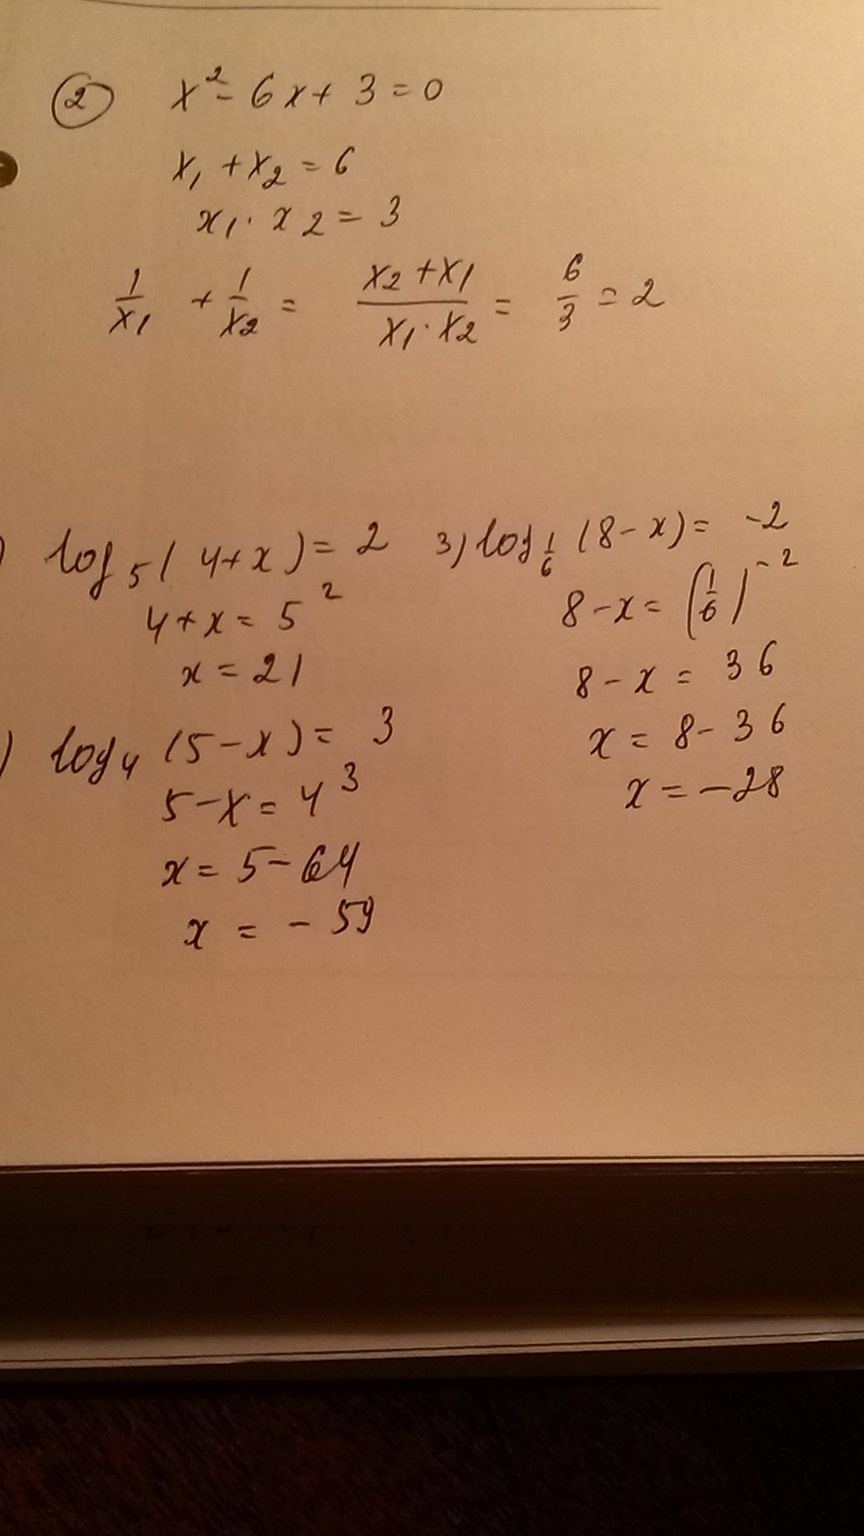 ② x² - 6x + 3 = 0
x₁ + x₂ = 6
x₁ · x₂ = 3
1/x₁ + 1/x₂ = (x₂ + x₁)/(x₁ · x₂) = 6/3 = 2
) log₅(4+x) = 2
4+x = 5²
x = 21
) log₄(5-x) = 3
5-x = 4³
x = 5-64
x = -59
3) log_{1/6}(8-x) = -2
8-x = (1/6)⁻²
8-x = 36
x = 8-36
x = -28